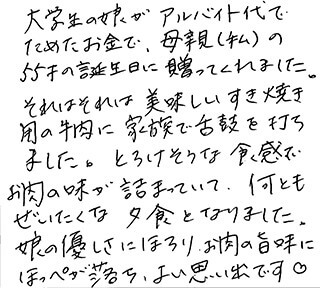 大学生の娘がアルバイト代で
ためたお金で、母親(私)の
55才の誕生日に贈ってくれました。
それはそれは美味しいすき焼き
用の牛肉に家族で舌鼓を打ち
ました。とろけそうな食感で
お肉の味が詰まっていて、何とも
ぜいたくな夕食となりました。
娘の優しさにほろり、お肉の旨味に
ほっぺが落ち、よい思い出です♡